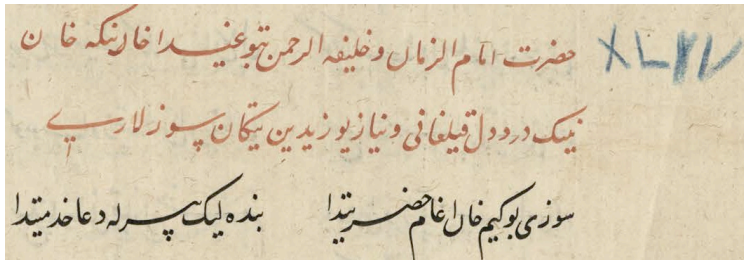 حضرت امام الزمان و خلیفه الرحمن تبوغیدا خان ینکه خان XLIV
نینک درد دل قیلغانی و نیاز یوزیدین یتکان سوزلاری
سوزی بو کیم خان اغام حضرتیدا بنده لیک بیرله دعا خدمتیدا